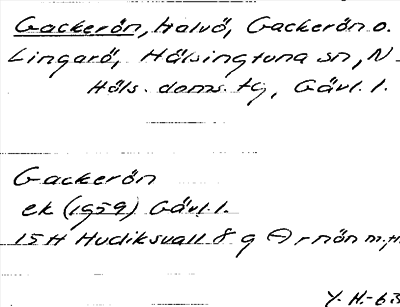 Gackerön, halvö, Gackerön o.
Lingarö, Hälsingtuna sn, N.
Häls. doms. tg, Gävl. l.
Gackerön
ek (1959) Gävl. l.
15H Hudiksvall 8 g Arnön m.fl.
Y. H.-63